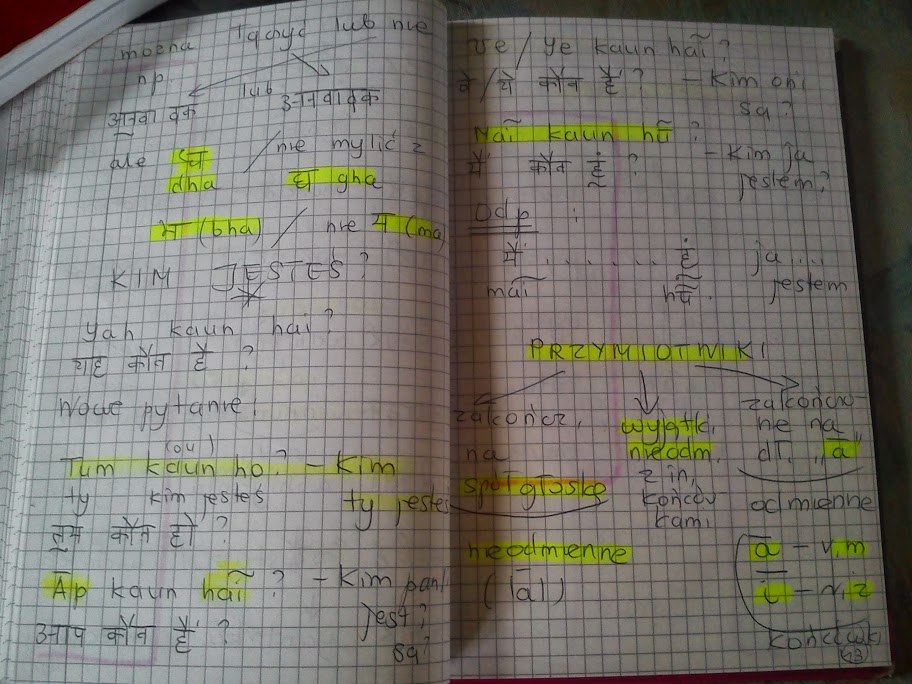 można łączyć lub nie
np.
अनवादक lub अनवादक
ale ध / nie mylić z
dha घ gha
भ (bha) / nie म (ma
KIM JESTEŚ?
Yah kaun hai?
यह कौन है ?
Nowe pytanie!
(ou)
Tum kaun ho? – Kim
ty kim jesteś ty jesteś
तुम कौन हो ?
Āp kaun haĩ ? – Kim pan
jest?
आप कौन हैं ?
są?
Ve / Ye kaun haĩ ?
वे / ये कौन हैं ? – Kim oni
są?
Maĩ kaun hũ ?
मैं कौन हूँ ? – Kim ja
jestem?
Odp :
मैं . . . . . . . हूँ ja ....
maĩ hũ. jestem
PRZYMIOTNIKI
zakończ.
na
spółgłoskę
nieodmienne
(lāl)
wyjątki
nieodm.
z in.
końców
kami
zakończo-
ne na
dł. „a"
odmienne
ā – r.m
ī – r.ż
końcówki
43